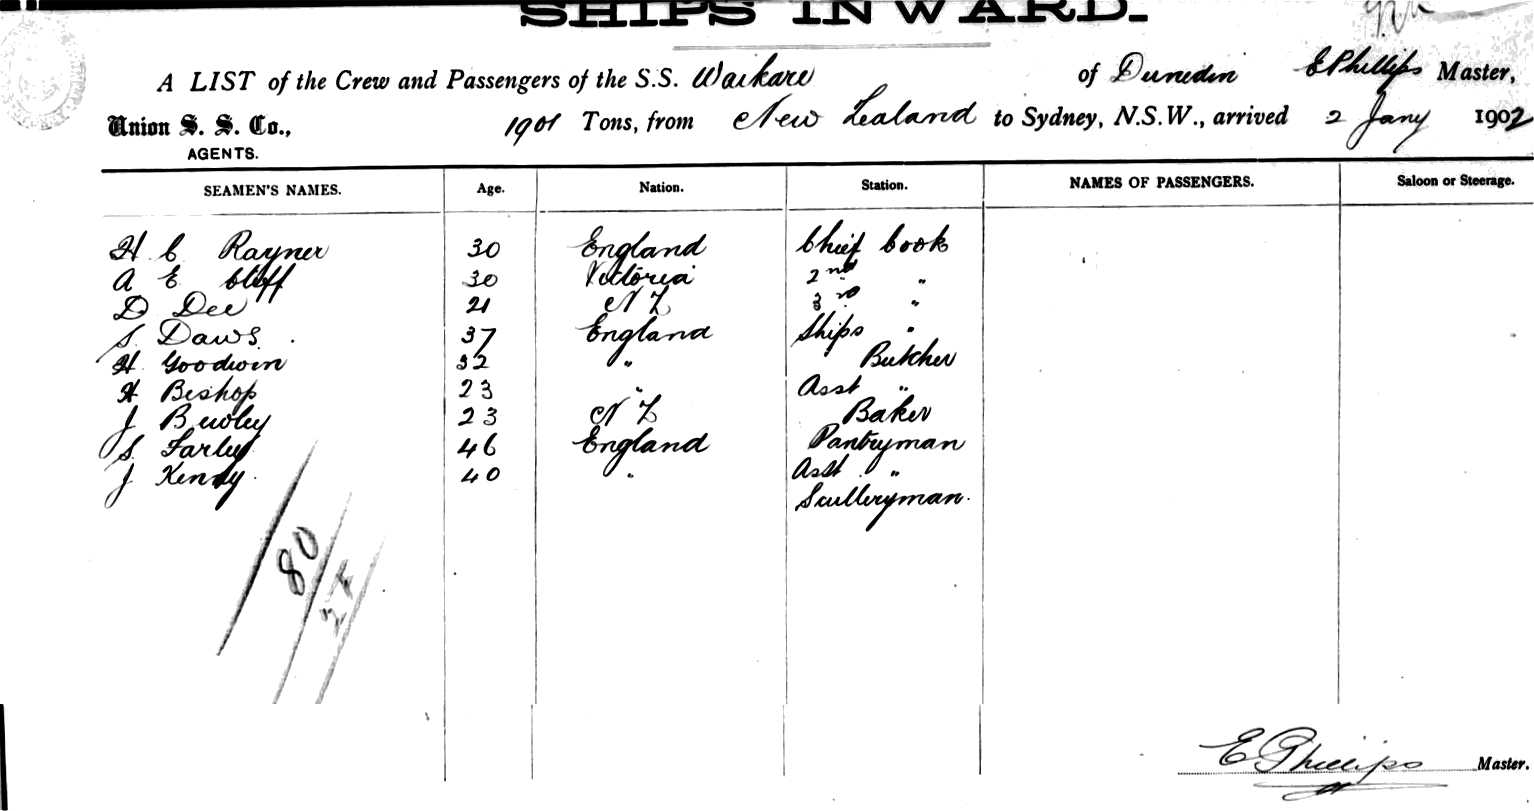 SHIPS INWARD.
A LIST of the Crew and Passengers of the S.S. Waikare of Dunedin E Phillips Master,
Union S. S. Co., 1901 Tons, from New Zealand to Sydney, N.S.W., arrived 2 Jany 1902
AGENTS.
SEAMEN'S NAMES. Age. Nation. Station. NAMES OF PASSENGERS. Saloon or Steerage.
H C Rayner 30 England Chief Cook
A E Cluff 30 Victoria 2nd "
D Dee 21 N Z 3rd "
S. Daws. 37 England Ships "
H Goodwin 32 " Butcher
H Bishop 23 " Asst "
J 23 N Z Baker
S. Farley 46 England Pantryman
J Kenny 40 " Asst "
Sculleryman.
80
24
E Phillips Master.